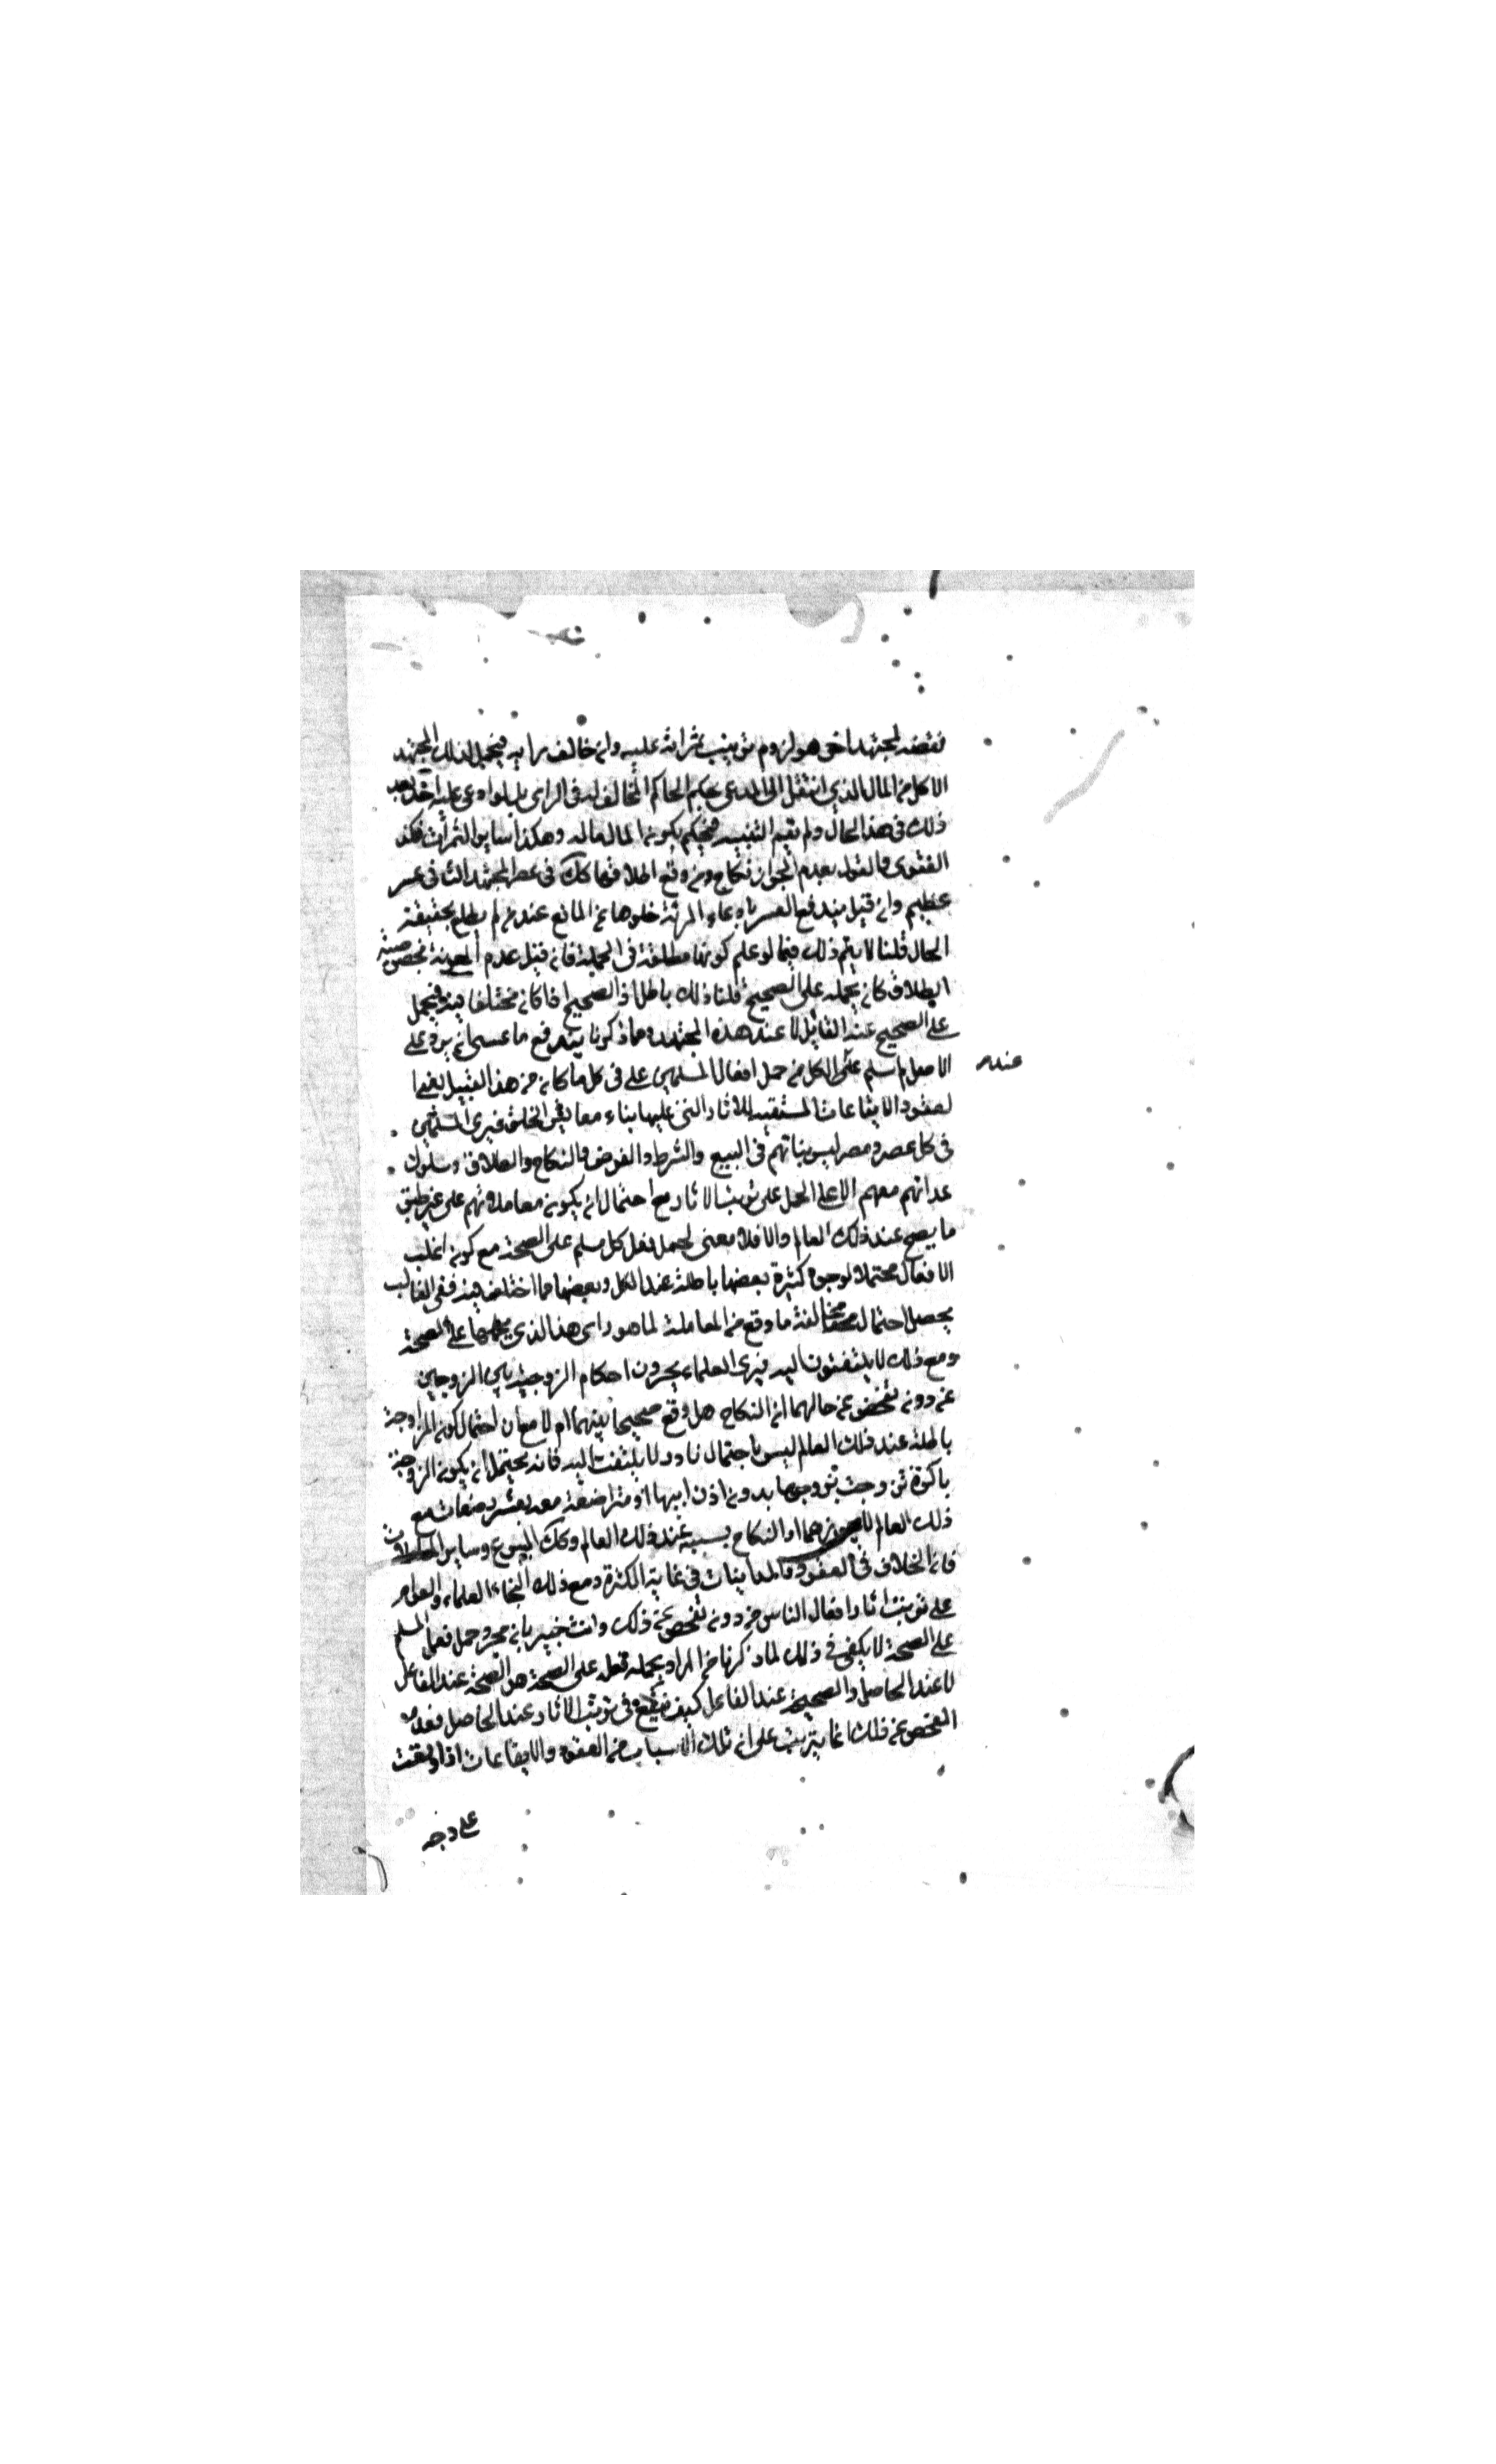 نقضه لمجتهد اخر هو لزوم ترتيب ثمراته عليه وان خالف رايه فيحل لذلك المجتهد
الاكل من المال الذي انتقل الى المدعي بحكم الحاكم المخالف له في الراي بل لو ادعى عليه احد بعد
ذلك في هذا الحال ولم يقم البينة فيحكم بكون المال ماله وهكذا ساير الثمرات فكذا
الفتوى فالقول بعدم الجواز نكاح من وقع طلاقها كك في عصر المجتهد الثاني عسر
عظيم وان قيل يندفع العسر بادعاء المرئة خلوها عن المانع عند من لم يطلع بحقيقة
الحال قلنا لا يتم ذلك فيما لو علم كونها مطلقة في الجملة فان قيل عدم المعرفة بخصوصية
الطلاق كان يحمله على الصحيح قلنا ذلك باطل اذ الصحيح اذا كان مختلفا فيه فيحمل
على الصحيح عند القائل لا عند هذه المجتهد ومما ذكرنا يندفع ما عسى ان يرد على
الاصل المسلم عند الكل من حمل افعال المسلمين على في كل ما كان من هذا القبيل
لعقود الايقاعات المستتبعة للاثار التي عليها بناء معايش الخلق فيرى المسلمين
في كل عصر ومصر ليس بنائهم في البيع والشرط والقرض والنكاح والطلاق وسلوك
عداتهم معهم الا على الحمل على ترتيب الاثار مع احتمال ان يكون معاملاتهم على غير طبق
ما يصح عند ذلك العالم والا فلا معنى لحمل فعل كل مسلم على الصحة مع كون اغلب
الافعال محتملا لوجوه كثيرة بعضها باطلة عند الكل وبعضها مما اختلف فيه ففي الغالب
يحصل احتمال مخالفة ما وقع من المعاملة لما هو راى هذا الذي يحملها على الصحة
ومع ذلك لا يلتفتون اليه فيرى العلماء يجرون احكام الزوجية بين الزوجين
من دون تفحص عن حالهما ان النكاح هل وقع صحيحا بينهما ام لا مع ان احتمال كون المزاوجة
باطلة عند ذلك العالم ليس باحتمال نادر لا يلتفت اليه فانه يحتمل ان يكون الزوجة
باكرة تزوجت بزوجها بدون اذن ابيها او متراضعة معه بعشر رضعات مع
ذلك العالم او النكاح بسببه عند ذلك العالم وكك البيوع وساير المعاملات
فان الخلاف في العقود في غاية الكثرة ومع ذلك التجاء العلماء والعوام
على ترتيب اثار افعال الناس من دون تفحص عن ذلك وانت خبير بان مجرد حمل فعل المسلم
على الصحة لا يكفي في ذلك لما ذكرنا من المراد بحمله فعله على الصحة هو الصحة عند الفاعل
لا عند الحامل والصحيح عند الفاعل كيف ينفع في ترتيب الاثار عند الحامل فعدم
التفحص عن ذلك انما يترتب على ان تلك الاسباب من العقود والايقاعات اذا وقعت
عنده
على وجه